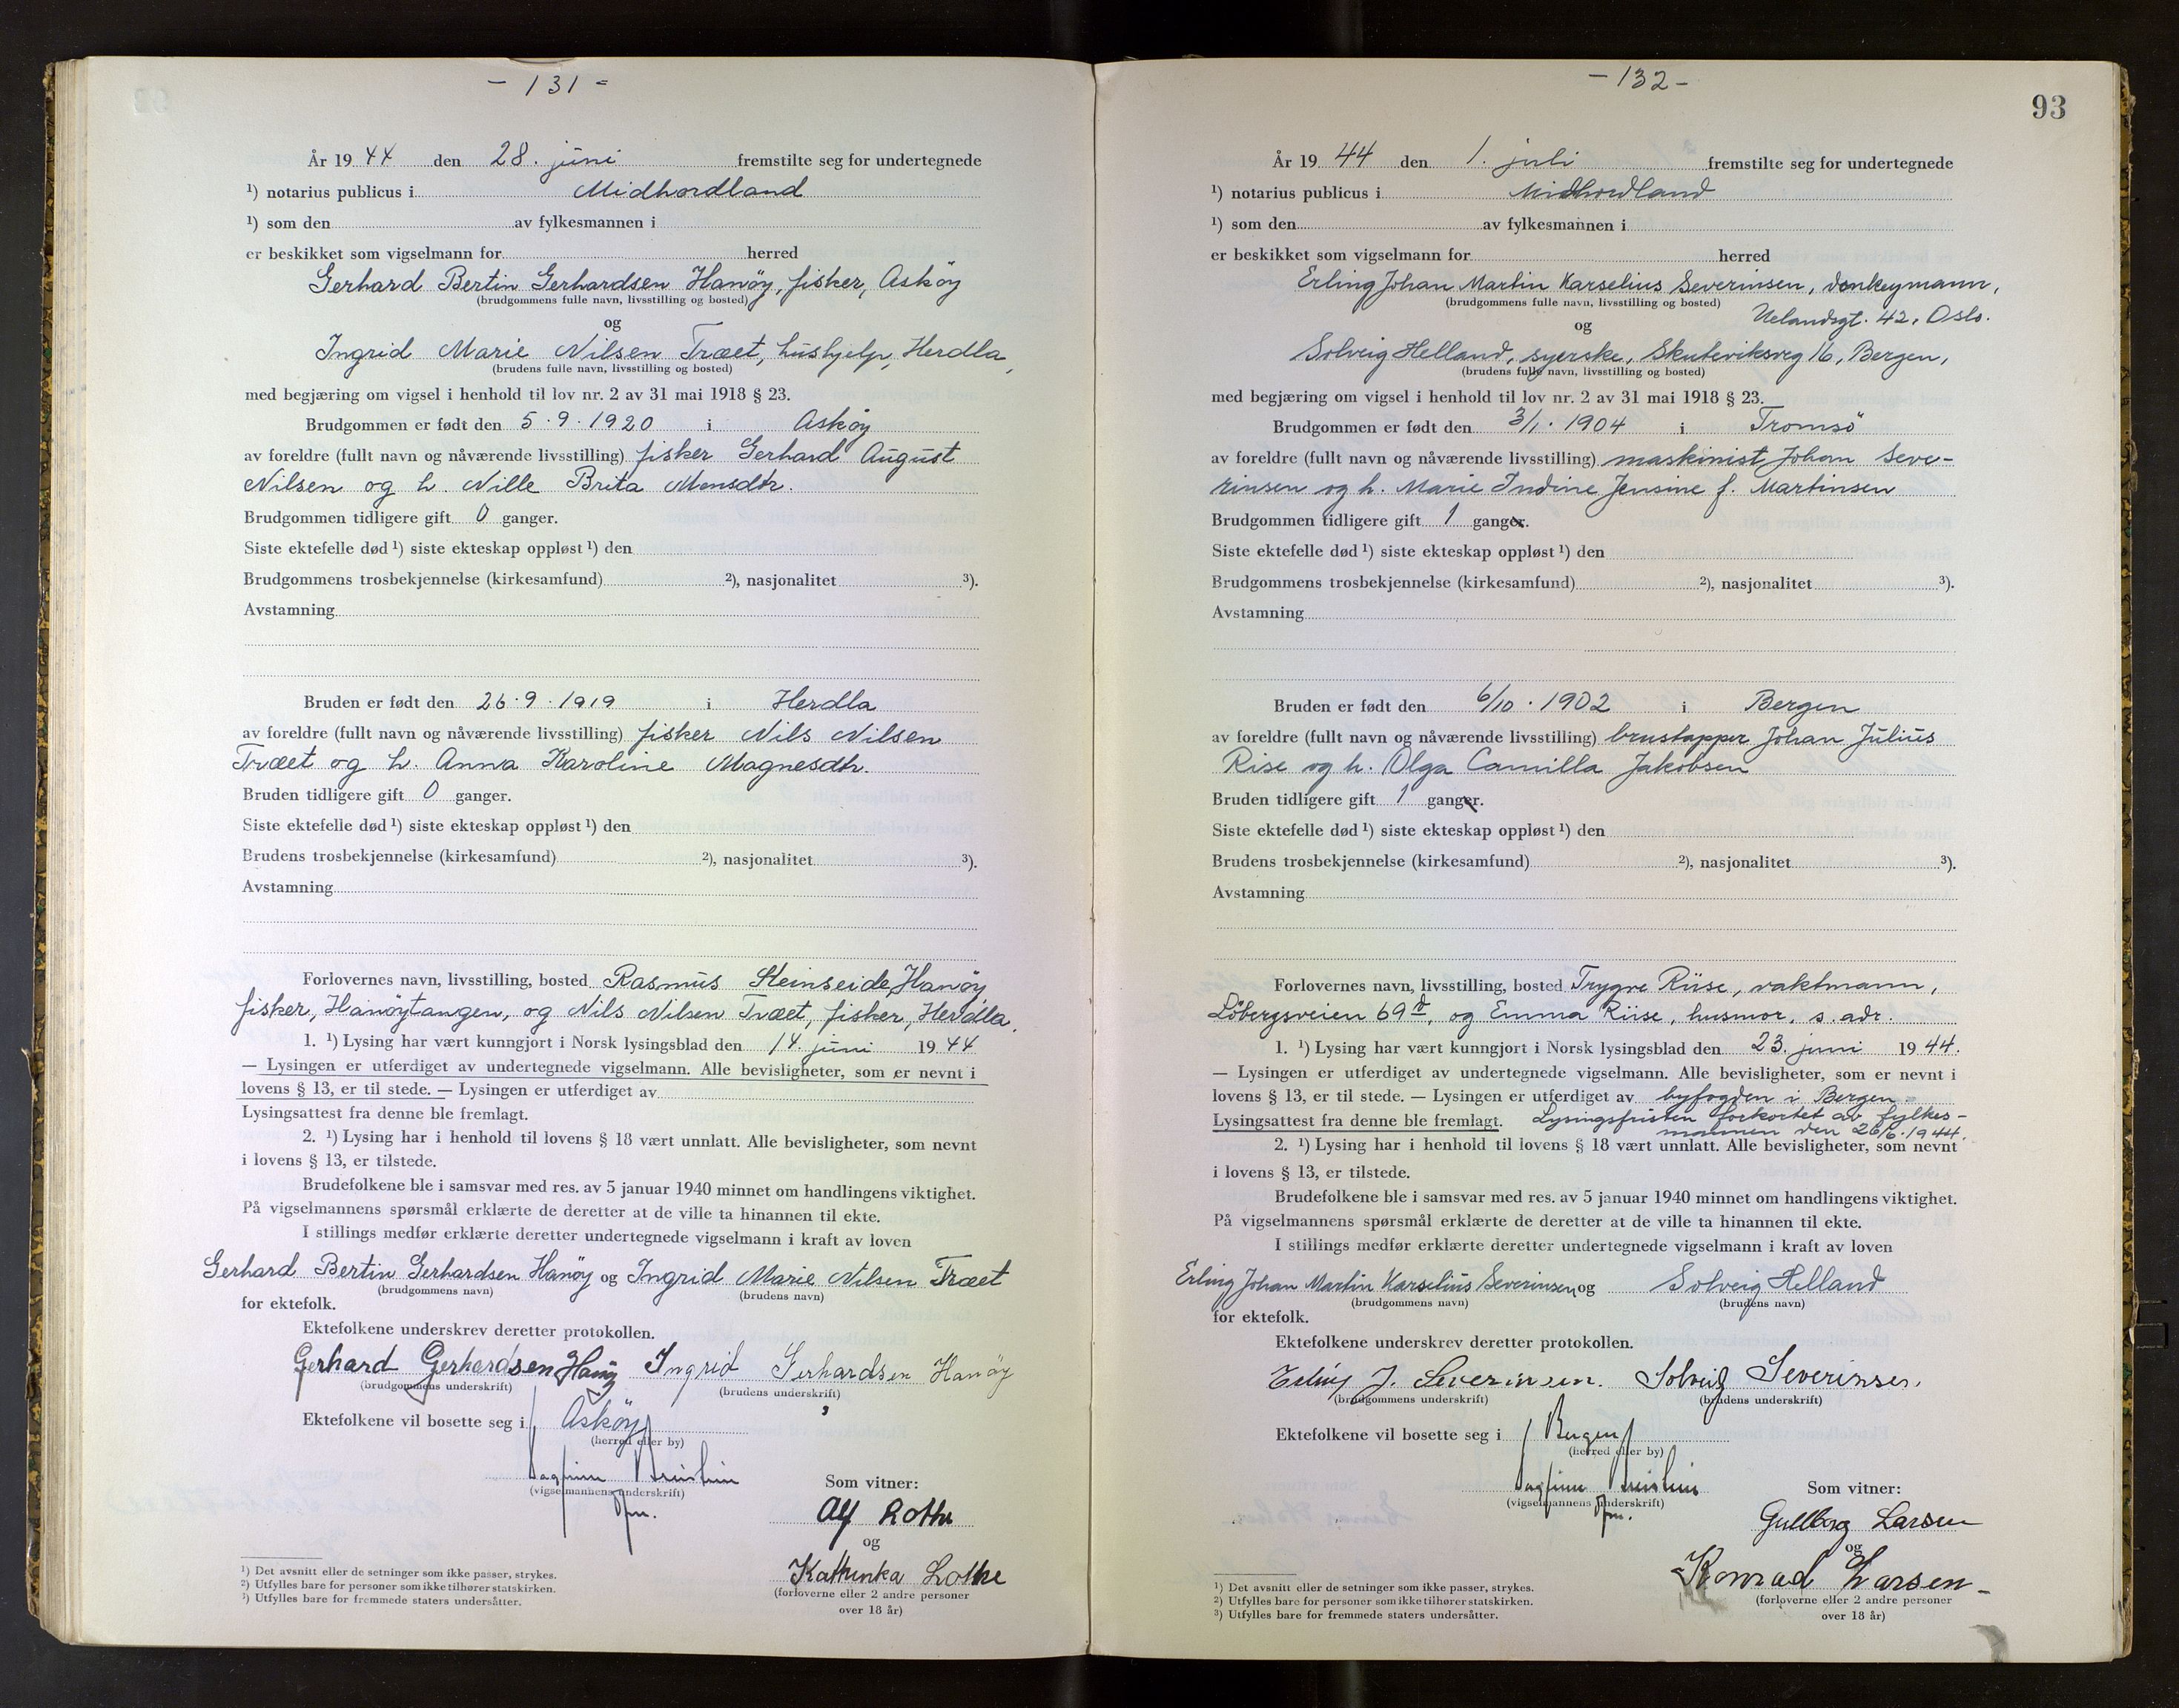 - 131 -
År 1944 den 28. juni fremstilte seg for undertegnede
¹) notarius publicus i Midhordland
¹) som den av fylkesmannen i
er beskikket som vigselmann for herred
Gerhard Bertin Gerhardsen Hanøy, fisker, Askøy
(brudgommens fulle navn, livsstilling og bosted)
og
Ingrid Marie Nilsen Træet, hushjelp, Herdla,
(brudens fulle navn, livsstilling og bosted)
med begjæring om vigsel i henhold til lov nr. 2 av 31 mai 1918 § 23.
Brudgommen er født den 5.9.1920 i Askøy
av foreldre (fullt navn og nåværende livsstilling) fisker Gerhard August
Nilsen og h. Nille Brita Monsdtr.
Brudgommen tidligere gift 0 ganger.
Siste ektefelle død ¹) siste ekteskap oppløst ¹) den
Brudgommens trosbekjennelse (kirkesamfund) ²), nasjonalitet ³).
Avstamning
Bruden er født den 26.9.1919 i Herdla
av foreldre (fullt navn og nåværende livsstilling) fisker Nils Nilsen
Træet og h. Anna Karoline Magnesdtr.
Bruden tidligere gift 0 ganger.
Siste ektefelle død ¹) siste ekteskap oppløst ¹) den
Brudens trosbekjennelse (kirkesamfund) ²), nasjonalitet ³).
Avstamning
Forlovernes navn, livsstilling, bosted Rasmus Steinseide Hanøy,
fisker, Hanøytangen, og Nils Nilsen Træet, fisker, Herdla.
1. ¹) Lysing har vært kunngjort i Norsk lysingsblad den 14. juni 1944
— Lysingen er utferdiget av undertegnede vigselmann. Alle bevisligheter, som er nevnt i
lovens § 13, er til stede. — Lysingen er utferdiget av
Lysingsattest fra denne ble fremlagt.
2. ¹) Lysing har i henhold til lovens § 18 vært unnlatt. Alle bevisligheter, som nevnt
i lovens § 13, er tilstede.
Brudefolkene ble i samsvar med res. av 5 januar 1940 minnet om handlingens viktighet.
På vigselmannens spørsmål erklærte de deretter at de ville ta hinannen til ekte.
I stillings medfør erklærte deretter undertegnede vigselmann i kraft av loven
Gerhard Bertin Gerhardsen Hanøy og Ingrid Marie Nilsen Træet
(brudgommens navn) (brudens navn)
for ektefolk.
Ektefolkene underskrev deretter protokollen.
Gerhard Gerhardsen Hanøy Ingrid Gerhardsen Hanøy
(brudgommens underskrift) (brudens underskrift)
Ektefolkene vil bosette seg i Askøy
(herred eller by)
(vigselmannens underskrift)
Som vitner:
Alf Rothe
og
Kathinka Lothe
(forloverne eller 2 andre personer
over 18 år)
¹) Det avsnitt eller de setninger som ikke passer, strykes.
²) Utfylles bare for personer som ikke tilhører statskirken.
³) Utfylles bare for fremmede staters undersåtter.
- 132 -
93
År 1944 den 1. juli fremstilte seg for undertegnede
¹) notarius publicus i Midhordland
¹) som den av fylkesmannen i
er beskikket som vigselmann for herred
Erling Johan Martin Karselius Severinsen, donkeymann,
(brudgommens fulle navn, livsstilling og bosted)
Uelandsgt. 42, Oslo.
og
Solveig Helland, syerske, Skuteviksveg 16, Bergen,
(brudens fulle navn, livsstilling og bosted)
med begjæring om vigsel i henhold til lov nr. 2 av 31 mai 1918 § 23.
Brudgommen er født den 3/1.1904 i Tromsö
av foreldre (fullt navn og nåværende livsstilling) maskinist Johan Seve-
rinsen og h. Marie Indine Jensine f. Martinsen
Brudgommen tidligere gift 1 ganger.
Siste ektefelle død ¹) siste ekteskap oppløst ¹) den
Brudgommens trosbekjennelse (kirkesamfund) ²), nasjonalitet ³).
Avstamning
Bruden er født den 6/10.1902 i Bergen
av foreldre (fullt navn og nåværende livsstilling) brustapper Johan Julius
Rise og h. Olga Camilla Jakobsen
Bruden tidligere gift 1 ganger.
Siste ektefelle død ¹) siste ekteskap oppløst ¹) den
Brudens trosbekjennelse (kirkesamfund) ²), nasjonalitet ³).
Avstamning
Forlovernes navn, livsstilling, bosted Trygve Riise, vaktmann,
Löbergsveien 69 d, og Emma Riise, husmor, s. adr.
1. ¹) Lysing har vært kunngjort i Norsk lysingsblad den 23. juni 1944.
— Lysingen er utferdiget av undertegnede vigselmann. Alle bevisligheter, som er nevnt i
lovens § 13, er til stede. — Lysingen er utferdiget av byfogden i Bergen.
Lysingsattest fra denne ble fremlagt. Lysingsfristen forkortet av fylkes-
mannen den 26/6.1944.
2. ¹) Lysing har i henhold til lovens § 18 vært unnlatt. Alle bevisligheter, som nevnt
i lovens § 13, er tilstede.
Brudefolkene ble i samsvar med res. av 5 januar 1940 minnet om handlingens viktighet.
På vigselmannens spørsmål erklærte de deretter at de ville ta hinannen til ekte.
I stillings medfør erklærte deretter undertegnede vigselmann i kraft av loven
Erling Johan Martin Karselius Severinsen og Solveig Helland
(brudgommens navn) (brudens navn)
for ektefolk.
Ektefolkene underskrev deretter protokollen.
Erling J. Severinsen. Solveig Severinsen.
(brudgommens underskrift) (brudens underskrift)
Ektefolkene vil bosette seg i Bergen
(herred eller by)
(vigselmannens underskrift)
Som vitner:
Gullborg Larsen
og
Konrad Larsen
(forloverne eller 2 andre personer
over 18 år)
¹) Det avsnitt eller de setninger som ikke passer, strykes.
²) Utfylles bare for personer som ikke tilhører statskirken.
³) Utfylles bare for fremmede staters undersåtter.